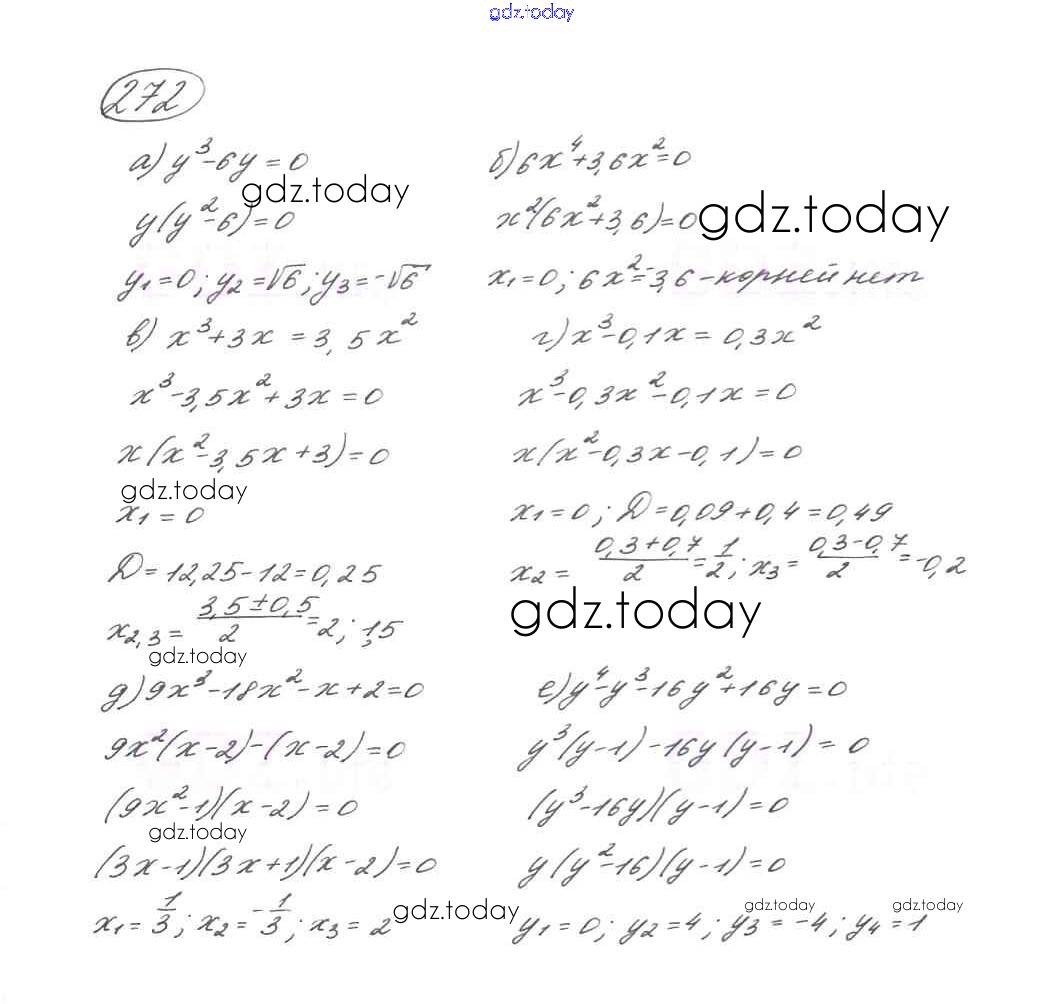 gdz.today
272
а) y³-6y=0
gdz.today
y(y²-6)=0
y₁=0; y₂=√6; y₃=-√6
б) 6x⁴+3,6x²=0
x²(6x²+3,6)=0
gdz.today
x₁=0; 6x²=-3,6 - корней нет
в) x³+3x=3,5x²
x³-3,5x²+3x=0
x(x²-3,5x+3)=0
gdz.today
x₁=0
D=12,25-12=0,25
x₂,₃=(3,5±0,5)/2=2; 1,5
gdz.today
г) x³-0,1x=0,3x²
x³-0,3x²-0,1x=0
x(x²-0,3x-0,1)=0
x₁=0; D=0,09+0,4=0,49
x₂=(0,3+0,7)/2=1/2; x₃=(0,3-0,7)/2=-0,2
gdz.today
д) 9x³-18x²-x+2=0
9x²(x-2)-(x-2)=0
(9x²-1)(x-2)=0
gdz.today
(3x-1)(3x+1)(x-2)=0
x₁=1/3; x₂=-1/3; x₃=2
gdz.today
е) y⁴-y³-16y²+16y=0
y³(y-1)-16y(y-1)=0
(y³-16y)(y-1)=0
y(y²-16)(y-1)=0
gdz.today gdz.today
y₁=0; y₂=4; y₃=-4; y₄=1